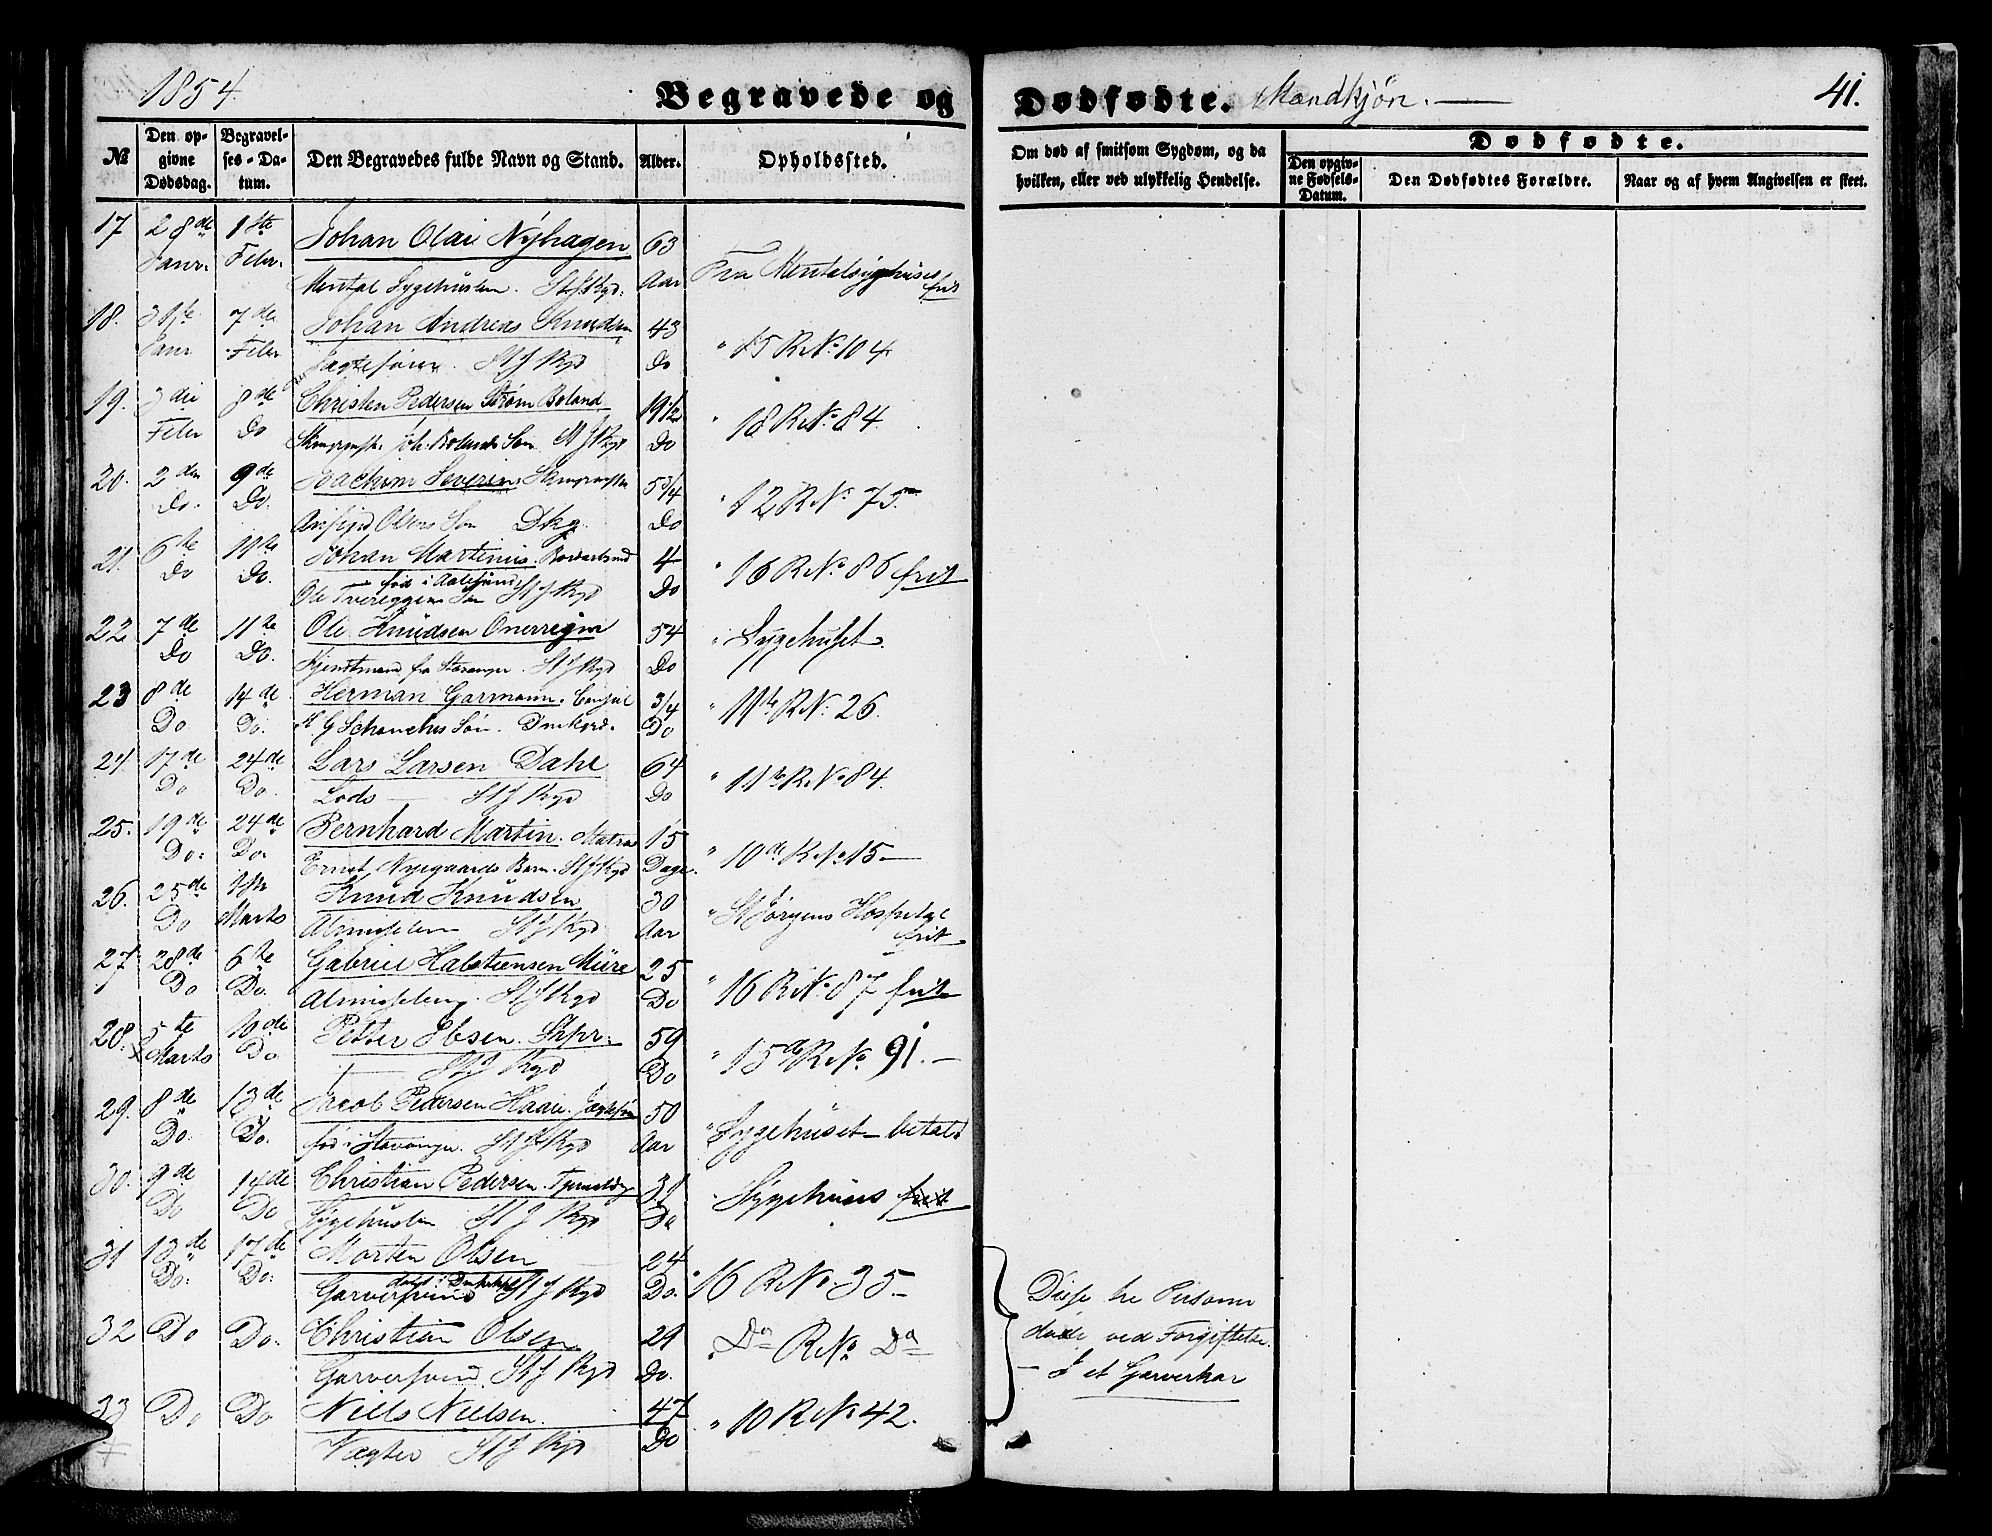 1854.
Begravede og Dødfødte. Mandkjøn. 41.
№ Den opgivne Dødsdag. Begravelses-Datum. Den Begravedes fulde Navn og Stand. Alder. Opholdssted. Om død af smitsom Sygdom, og da hvilken, eller ved ulykkelig Hendelse. Dødfødte. Den opgivne Fødsels-Datum. Den Dødfødtes Forældre. Naar og af hvem Angivelsen er skeet.
17 28de 1ste Johan Olai Nyhagen 63
Janr. Febr. Mental Sygehuslem. St J Kgd. Aar Fra Mentalsygehuset frit
18. 31te 7de Johan Andreas Knudsen 43
Janr Febr Jagtefører. St J Kgd Do " 15 R No 104
19. 3die 8de Christen Pedersen Strøm Boland 19 1/2
Febr Do Joh. Bolands Søn St J Kgd Do " 18 R No. 84.
20. 2den 9de Joachim Severin. 5 3/4
Do. Do. Olsens Søn Dkg. Do " 12 R No 75
21. 6te 11te Johan Martinus. 4
Do Do. Ole Søn født i Aalesund St J Kgd Do " 16 R No. 86 frit
22 7de 11te Ole Knudsen 54
Do Do. fra Stavanger. St J Kgd Do " Sygehuset.
23 8de 14de Herman Garmann. Consul 3/4
Do Do. Søn. Domkgd. Do " 19de R No. 26.
24 17de 24de Lars Larsen Dahl 64
Do Do. Lods — St J Kgd Do " 11te R No 84.
25. 19de 24de Bernhard Martin. Matros 15
Do. Do. Ernst Nyegaards Barn. St J Kgd Dage. " 10de R No 15 —
26. 25de 3die Knud Knudsen 30
Do Marts Almisselem St J Kgd Aar " St Jørgens Hospital frit
27. 28de 6te Gabriel Halstensen Mure 25
Do Do. Almisselem. St J Kgd Do " 16 R No. 87 frit
28. 5te 10de Petter Ibsen. Skpr. 59
Marts Do — St J Kgd Do " 15de R No 91. —
29. 8de 13de Jacob Pedersen Haaie. Jagtefører 50
Do. Do. fød i Stavanger. St J Kgd Aar " Sygehuset — betalt
30. 9de 14de Christian Pedersen. 31
Do Do Sygehuslem St J Kgd Do " Sygehuset frit
31 13de 17de Morten Olsen 24
Do. Do. Garversvend St J Kgd Do. " 16 R No 35 —
32 Do Do. Christian Olsen 29
Garversvend. St J Kgd Do. " Do R No Do
33 Do Do Niels Nielsen. 47
Vægter St J Kgd Do " 10 R No 42.
Disse tre Personer
døde ved Forgiftelse.
— I et Garverkar